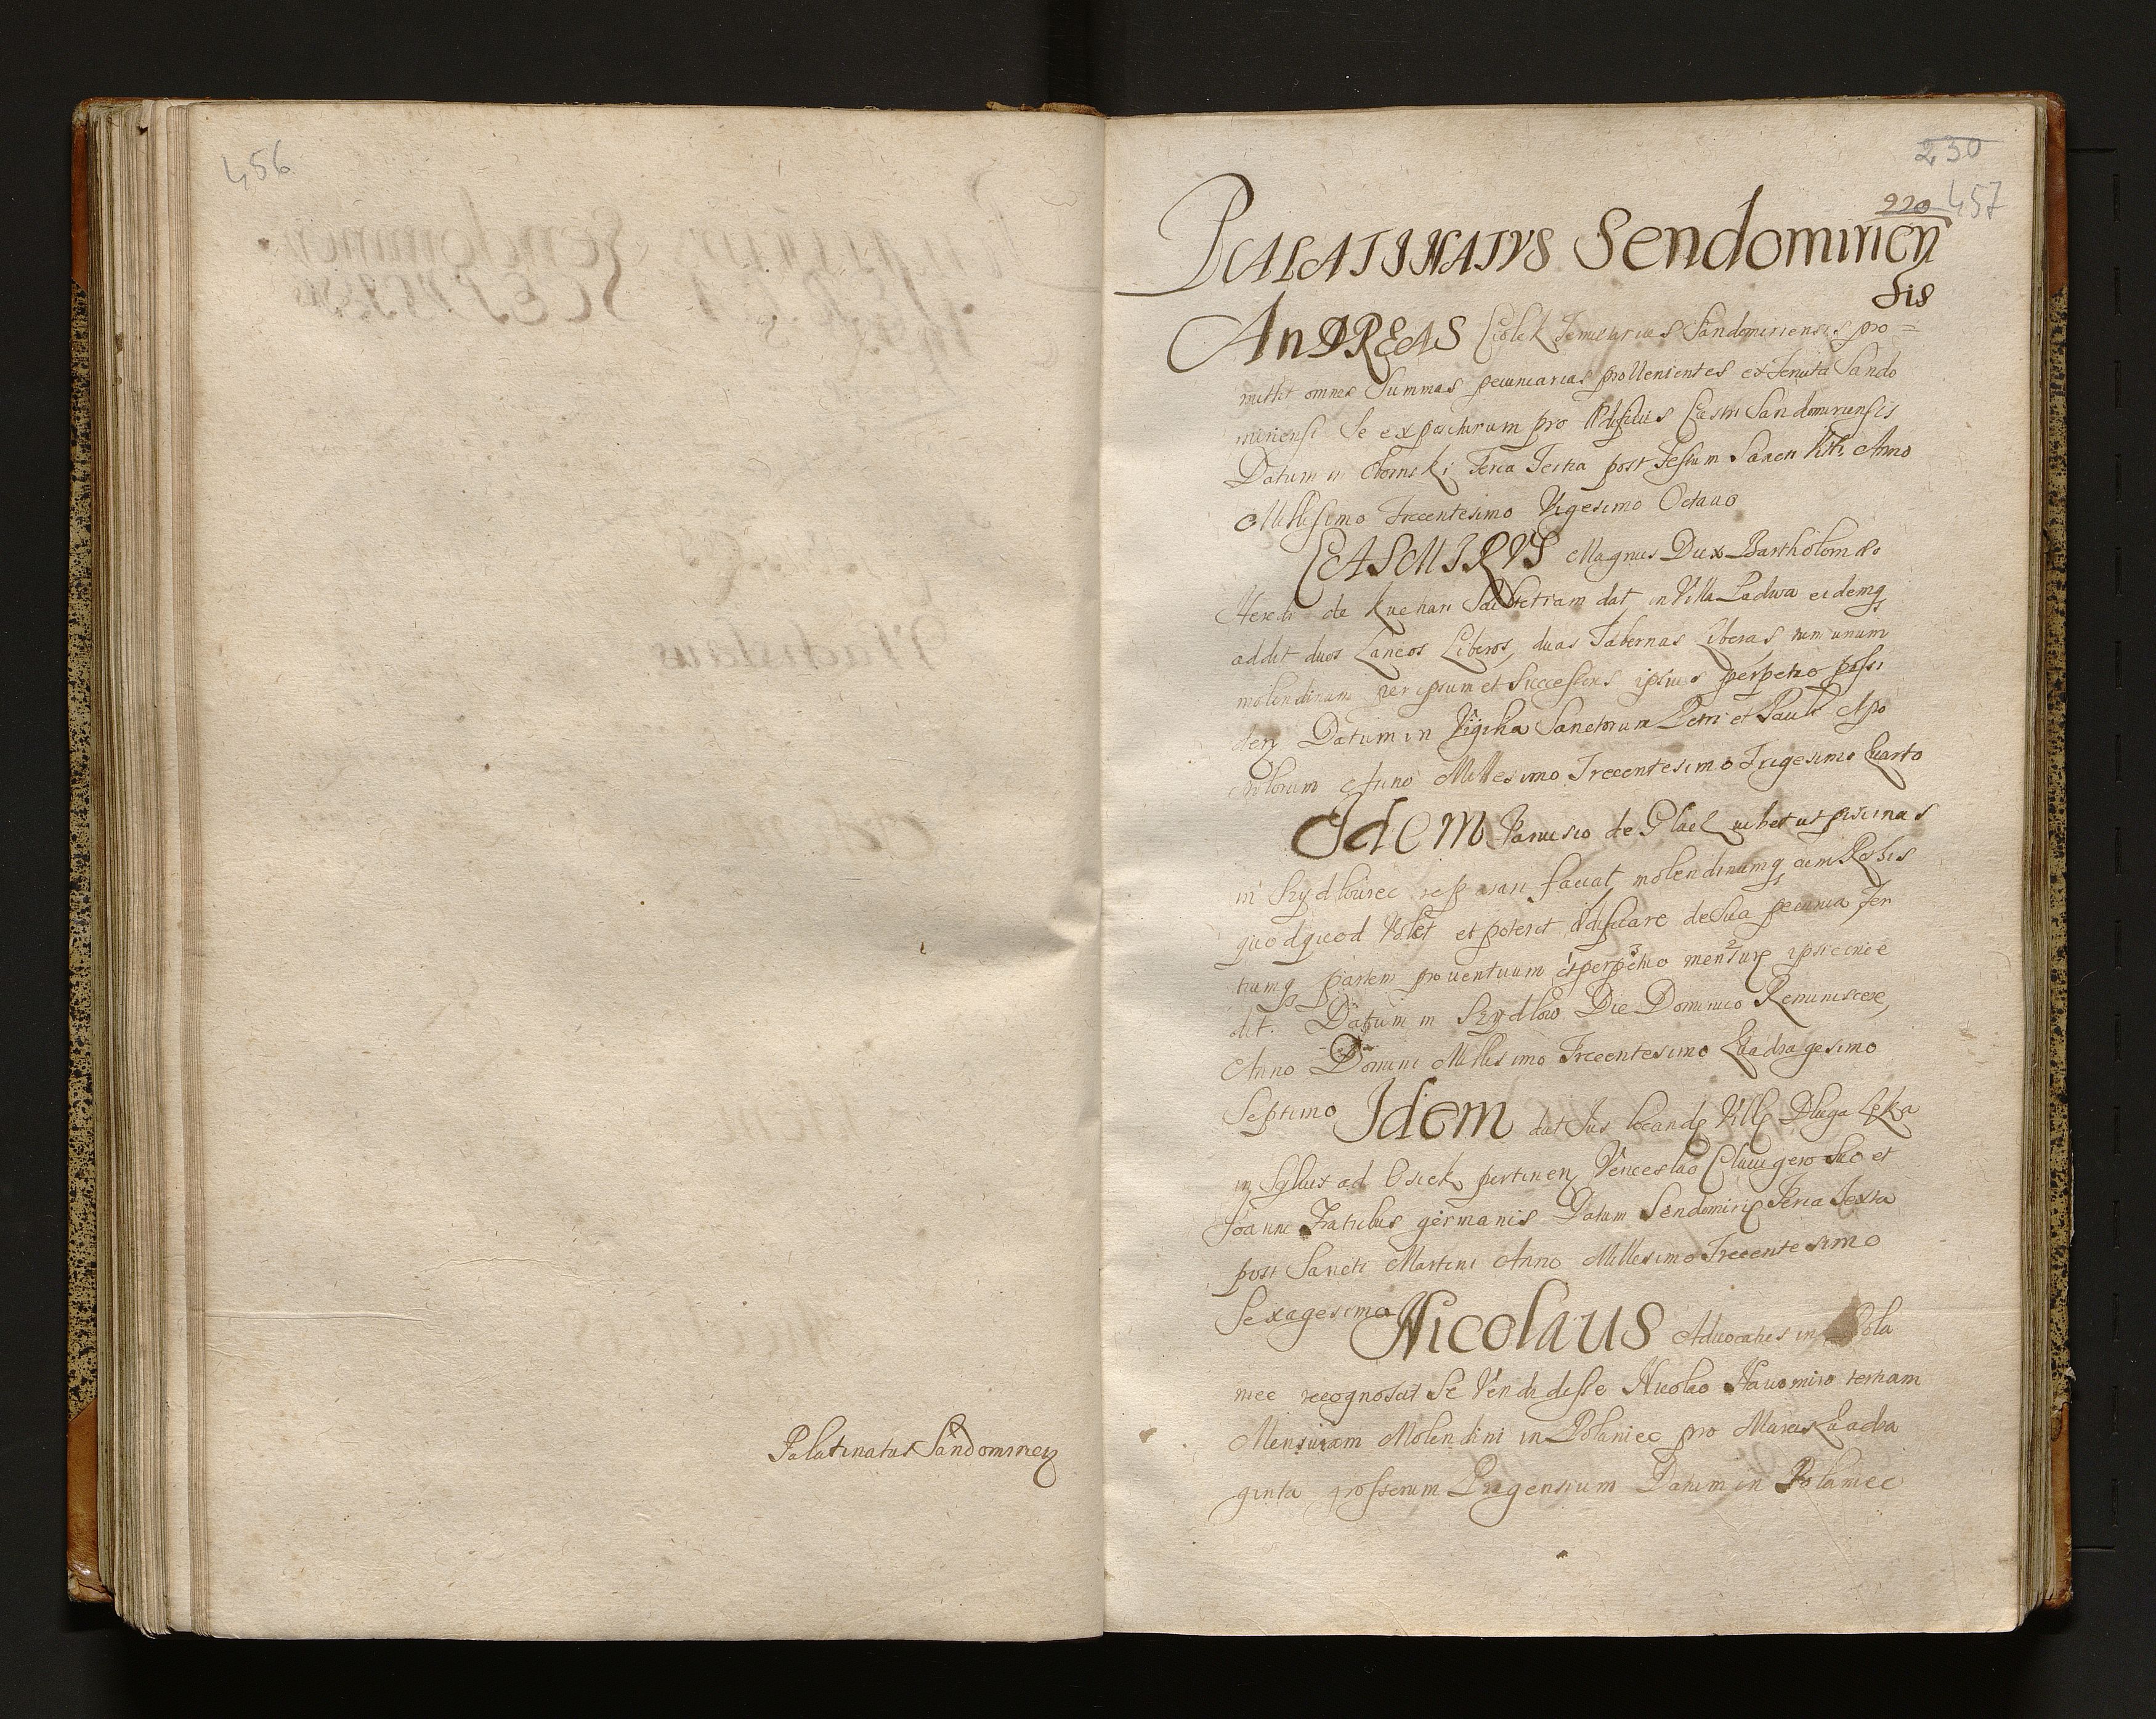 456
Palatinatus Sandomirien
230
220 457
PALATINATVS Sendomirien
sis
ANDREAS Ciolek Tenutarius Sandomiriensis pro=
mittit omnes Summas pecuniarias provenientes ex Tenuta Sando
miriensi Se expositurum pro Ædificiis Castri Sandomiriensis
Datum in Feria Tertia post Festum Sancti Viti Anno
Millesimo Trecentesimo Vigesimo Octavo
CASMIRVS Magnus Dux Bartholomæo
Heredi de Kuchari Scultetiam dat in Villa Padwa eidemq
addit duos Laneos Liberos, duas Tabernas Liberas, tum unum
molendinum per ipsum et Successores ipsius perpetuo possi
den Datum in Vigilia Sanctorum Petri et Pauli Apo
stolorum Anno Millesimo Trecentesimo Trigesimo Quarto
Idem de iubet ut piscinas
in Szydlowiec reparari faciat, molendinumq cum Rotis
quodquod Volet et poterit ædificare de Sua pecunia Ter
tiamq partem proventuum 1 perpetuo 3 mensuræ 2 ipsi conce
dit. Datum in Szydlow Die Dominico Reminiscere,
Anno Domini Millesimo Trecentesimo Quadragesimo
Septimo Idem dat Jus locandæ Villæ Dluga Lęka
in Sylvis ad Osiek pertinen Venceslao Clavigero Suo et
Joanne Fratribus germanis Datum Sendomiriæ Feria Sexta
post Sancti Martini Anno Millesimo Trecentesimo
Sexagesimo Nicolaus Advocatus in Pola
niec recognoscit Se Vendidisse Nicolao tertiam
Mensuram Molendini in Polaniec pro Marcis Quadra
ginta grossorum Pragensium Datum in Polaniec